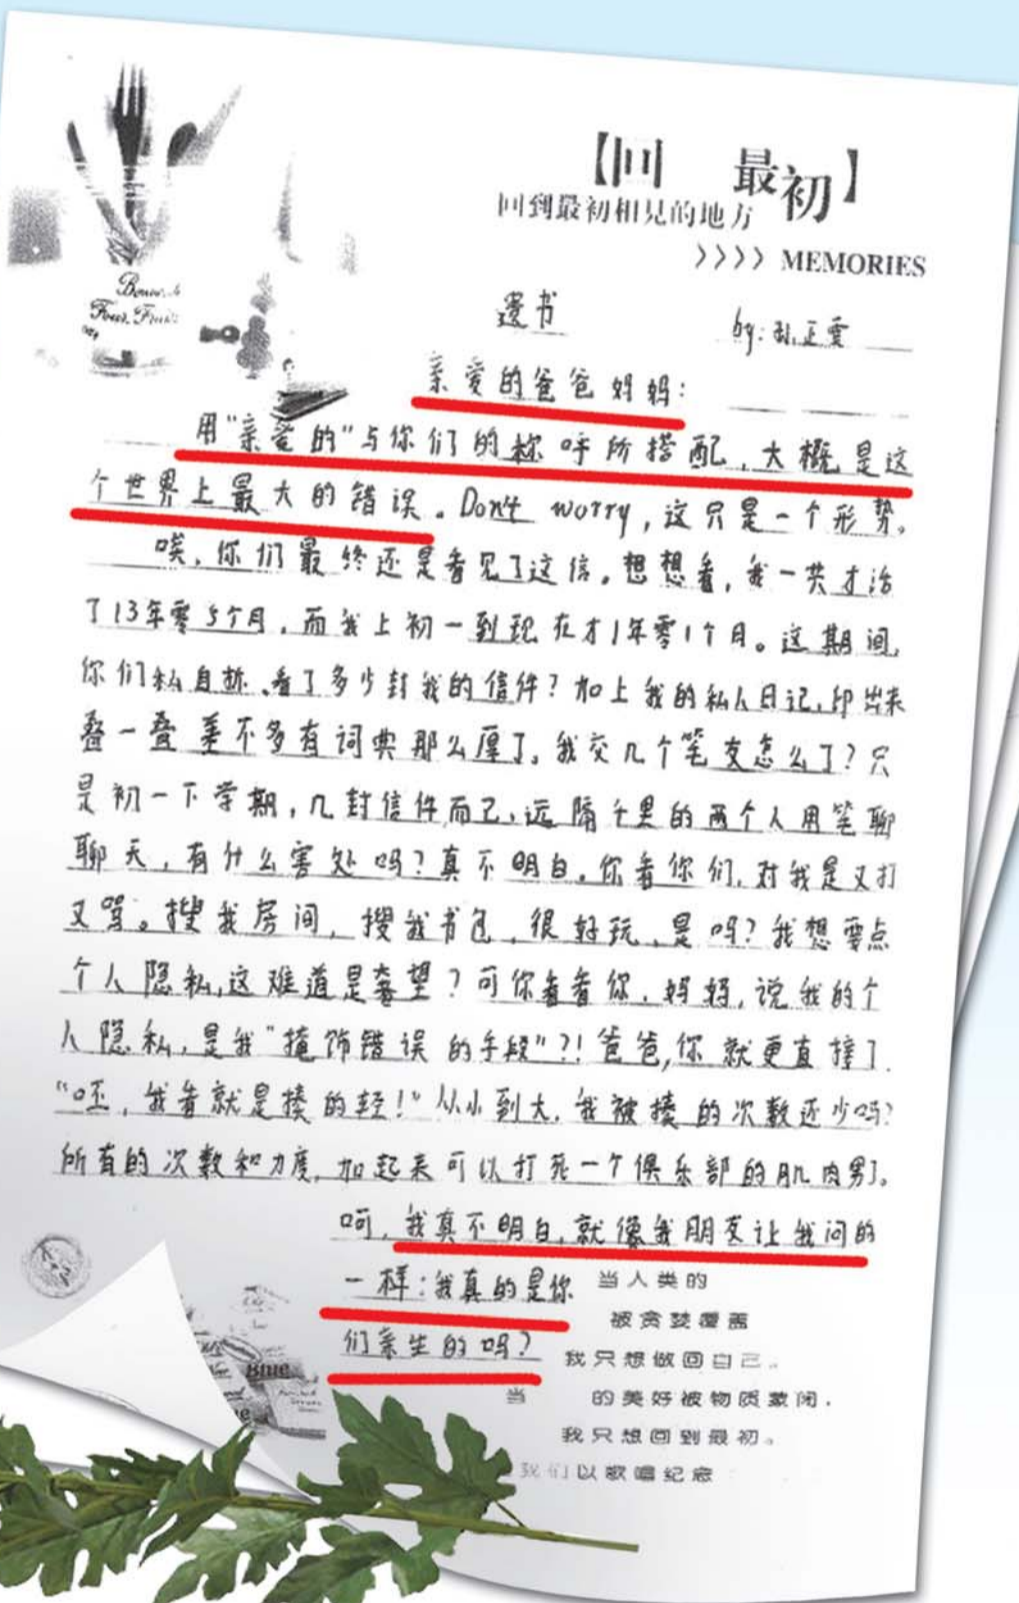 【回 最初】
回到最初相见的地方
>>>> MEMORIES
遗书
by:孙正雯
亲爱的爸爸妈妈:
用"亲爱的"与你们的称呼所搭配,大概是这
个世界上最大的错误。Don't worry,这只是一个形势。
唉,你们最终还是看见了这信。想想看,我一共才活
了13年零5个月,而我上初一到现在才1年零1个月。这期间,
你们私自拆、看了多少封我的信件?加上我的私人日记,印出来
叠一叠差不多有词典那么厚了。我交几个笔友怎么了?只
是初一下学期,几封信件而已,远隔千里的两个人用笔聊
聊天,有什么害处吗?真不明白。你看你们,对我是又打
又骂。搜我房间,搜我书包,很好玩,是吗?我想要点
个人隐私,这难道是奢望?可你看看你,妈妈,说我的个
人隐私,是我"掩饰错误的手段"?!爸爸,你就更直接了
"呸,我看就是揍的轻!"从小到大,我被揍的次数还少吗?
所有的次数和力度,加起来可以打死一个俱乐部的肌肉男了。
呵,我真不明白,就像我朋友让我问的
一样:我真的是你
们亲生的吗?
当人类的
被贪婪覆盖
我只想做回自己。
当 的美好被物质蒙闭,
我只想回到最初。
我们以歌唱纪念